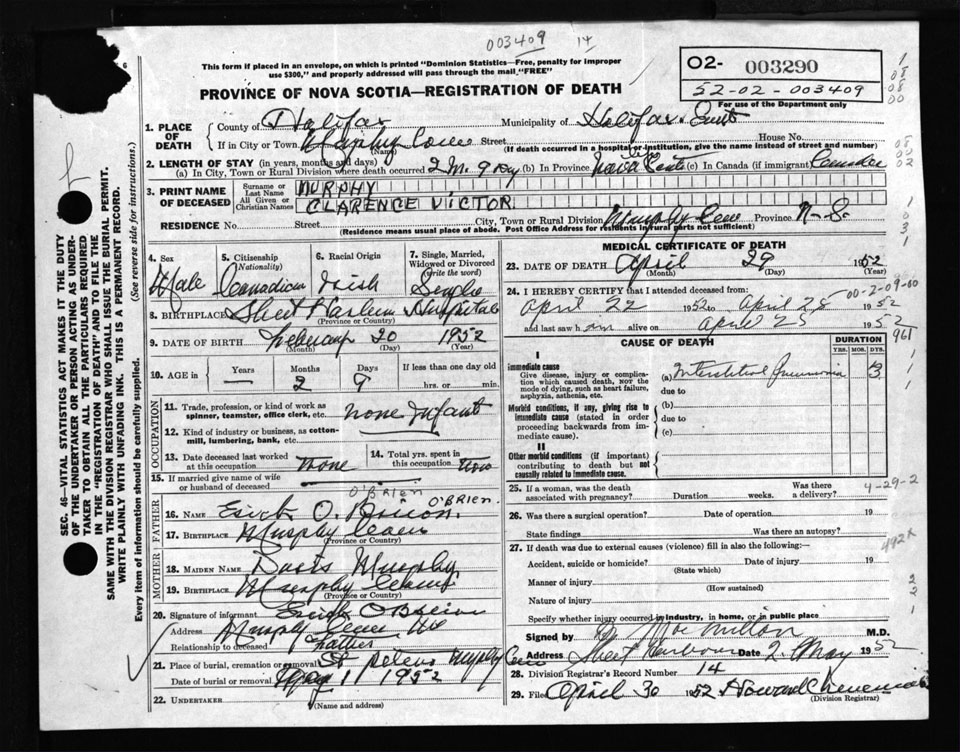 003409 14
This form if placed in an envelope, on which is printed "Dominion Statistics—Free, penalty for improper
use $300," and properly addressed will pass through the mail "FREE"
O2- 003290
52-02-003409
For use of the Department only
PROVINCE OF NOVA SCOTIA—REGISTRATION OF DEATH
SEC. 46—VITAL STATISTICS ACT MAKES IT THE DUTY
OF THE UNDERTAKER OR PERSON ACTING AS UNDER-
TAKER TO OBTAIN ALL THE PARTICULARS REQUIRED
IN THE "REGISTRATION OF DEATH" AND TO FILE THE
SAME WITH THE DIVISION REGISTRAR WHO SHALL ISSUE THE BURIAL PERMIT.
WRITE PLAINLY WITH UNFADING INK. THIS IS A PERMANENT RECORD.
Every item of information should be carefully supplied. (See reverse side for instructions.)
1. PLACE OF DEATH
County of Halifax Municipality of Halifax
If in City or Town Murphy Cove Street House No.
(Name) (If death occurred in a hospital or institution, give the name instead of street and number)
2. LENGTH OF STAY (in years, months and days)
(a) In City, Town or Rural Division where death occurred 2 M. 9 Day (b) In Province Nova Scotia (c) In Canada (if immigrant)
3. PRINT NAME OF DECEASED
Surname or Last Name MURPHY
All Given or Christian Names CLARENCE VICTOR
RESIDENCE No. Street City, Town or Rural Division Murphy Cove Province N-S.
(Residence means usual place of abode. Post Office Address for residents in rural parts not sufficient)
4. Sex 5. Citizenship (Nationality) 6. Racial Origin 7. Single, Married, Widowed or Divorced (Write the word)
Male Canadian Irish Single
8. BIRTHPLACE Sheet Harbour Hospital
(Province or Country)
9. DATE OF BIRTH February 20 1952
(Month) (Day) (Year)
10. AGE in Years Months Days If less than one day old
— 2 9 hrs. or min.
OCCUPATION
11. Trade, profession, or kind of work as
spinner, teamster, office clerk, etc. none Infant
12. Kind of industry or business, as cotton-
mill, lumbering, bank, etc.
13. Date deceased last worked at this occupation None
14. Total yrs. spent in this occupation
15. If married give name of wife
or husband of deceased
O'BRIEN O'BRIEN.
FATHER
16. NAME
17. BIRTHPLACE Murphy Cove
(Province or Country)
MOTHER
18. MAIDEN NAME Doris Murphy
19. BIRTHPLACE Murphy
(Province or Country)
20. Signature of informant O'Brien
Address Murphy Cove
Relationship to deceased Father
21. Place of burial, cremation or removal St Peters Murphy Cove
Date of burial or removal May 1 1952
22. UNDERTAKER
(Name and address)
MEDICAL CERTIFICATE OF DEATH
23. DATE OF DEATH April 29 1952
(Month) (Day) (Year)
24. I HEREBY CERTIFY that I attended deceased from:
April 22 1952 to April 25 1952
and last saw him alive on April 25 1952
CAUSE OF DEATH DURATION
YRS. MOS. DYS.
I
Immediate cause
Give disease, injury or complication which caused death, NOT the mode of dying, such as heart failure, asphyxia, asthenia, etc.
(a) Interstitial Pneumonia
due to
Morbid conditions, if any, giving rise to immediate cause (stated in order proceeding backwards from immediate cause).
(b)
due to
(c)
II
Other morbid conditions (if important) contributing to death but not causally related to immediate cause.
25. If a woman, was the death associated with pregnancy? Duration weeks. Was there a delivery?
4-29-2
26. Was there a surgical operation? Date of operation 19
State findings Was there an autopsy?
27. If death was due to external causes (violence) fill in also the following:—
Accident, suicide or homicide? Date of injury 19
(State which)
Manner of injury
(How sustained)
Nature of injury
Specify whether injury occurred in industry, in home, or in public place
Signed by M.D.
Address Sheet Harbour Date 2. May 1952
28. Division Registrar's Record Number 14
29. Filed April 30 1952 Howard
(Division Registrar)